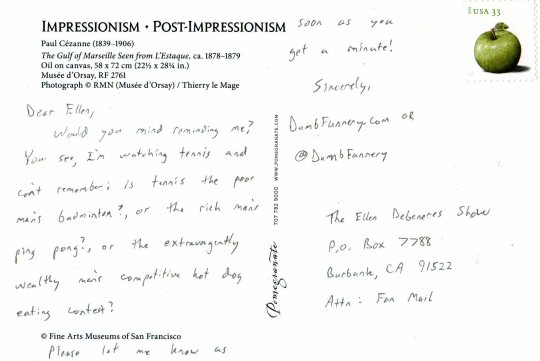 IMPRESSIONISM • POST-IMPRESSIONISM
Paul Cézanne (1839–1906)
The Gulf of Marseille Seen from L'Estaque, ca. 1878–1879
Oil on canvas, 58 x 72 cm (22½ x 28¼ in.)
Musée d'Orsay, RF 2761
Photograph © RMN (Musée d'Orsay) / Thierry le Mage
Dear Ellen,
Would you mind reminding me?
You see, I'm watching tennis and
can't remember: is tennis the poor
man's badminton?, or the rich man's
ping pong?, or the extravagently
wealthy man's competitive hot dog
eating contest?
© Fine Arts Museums of San Francisco
Please let me know as
soon as you
get a minute!
Sincerely,
DumbFunnery.com OR
@DumbFunnery
Pomegranate
707 782 9000 WWW.POMEGRANATE.COM
USA 33
The Ellen Degeneres Show
P.O. Box 7788
Burbank, CA 91522
Attn: Fan Mail